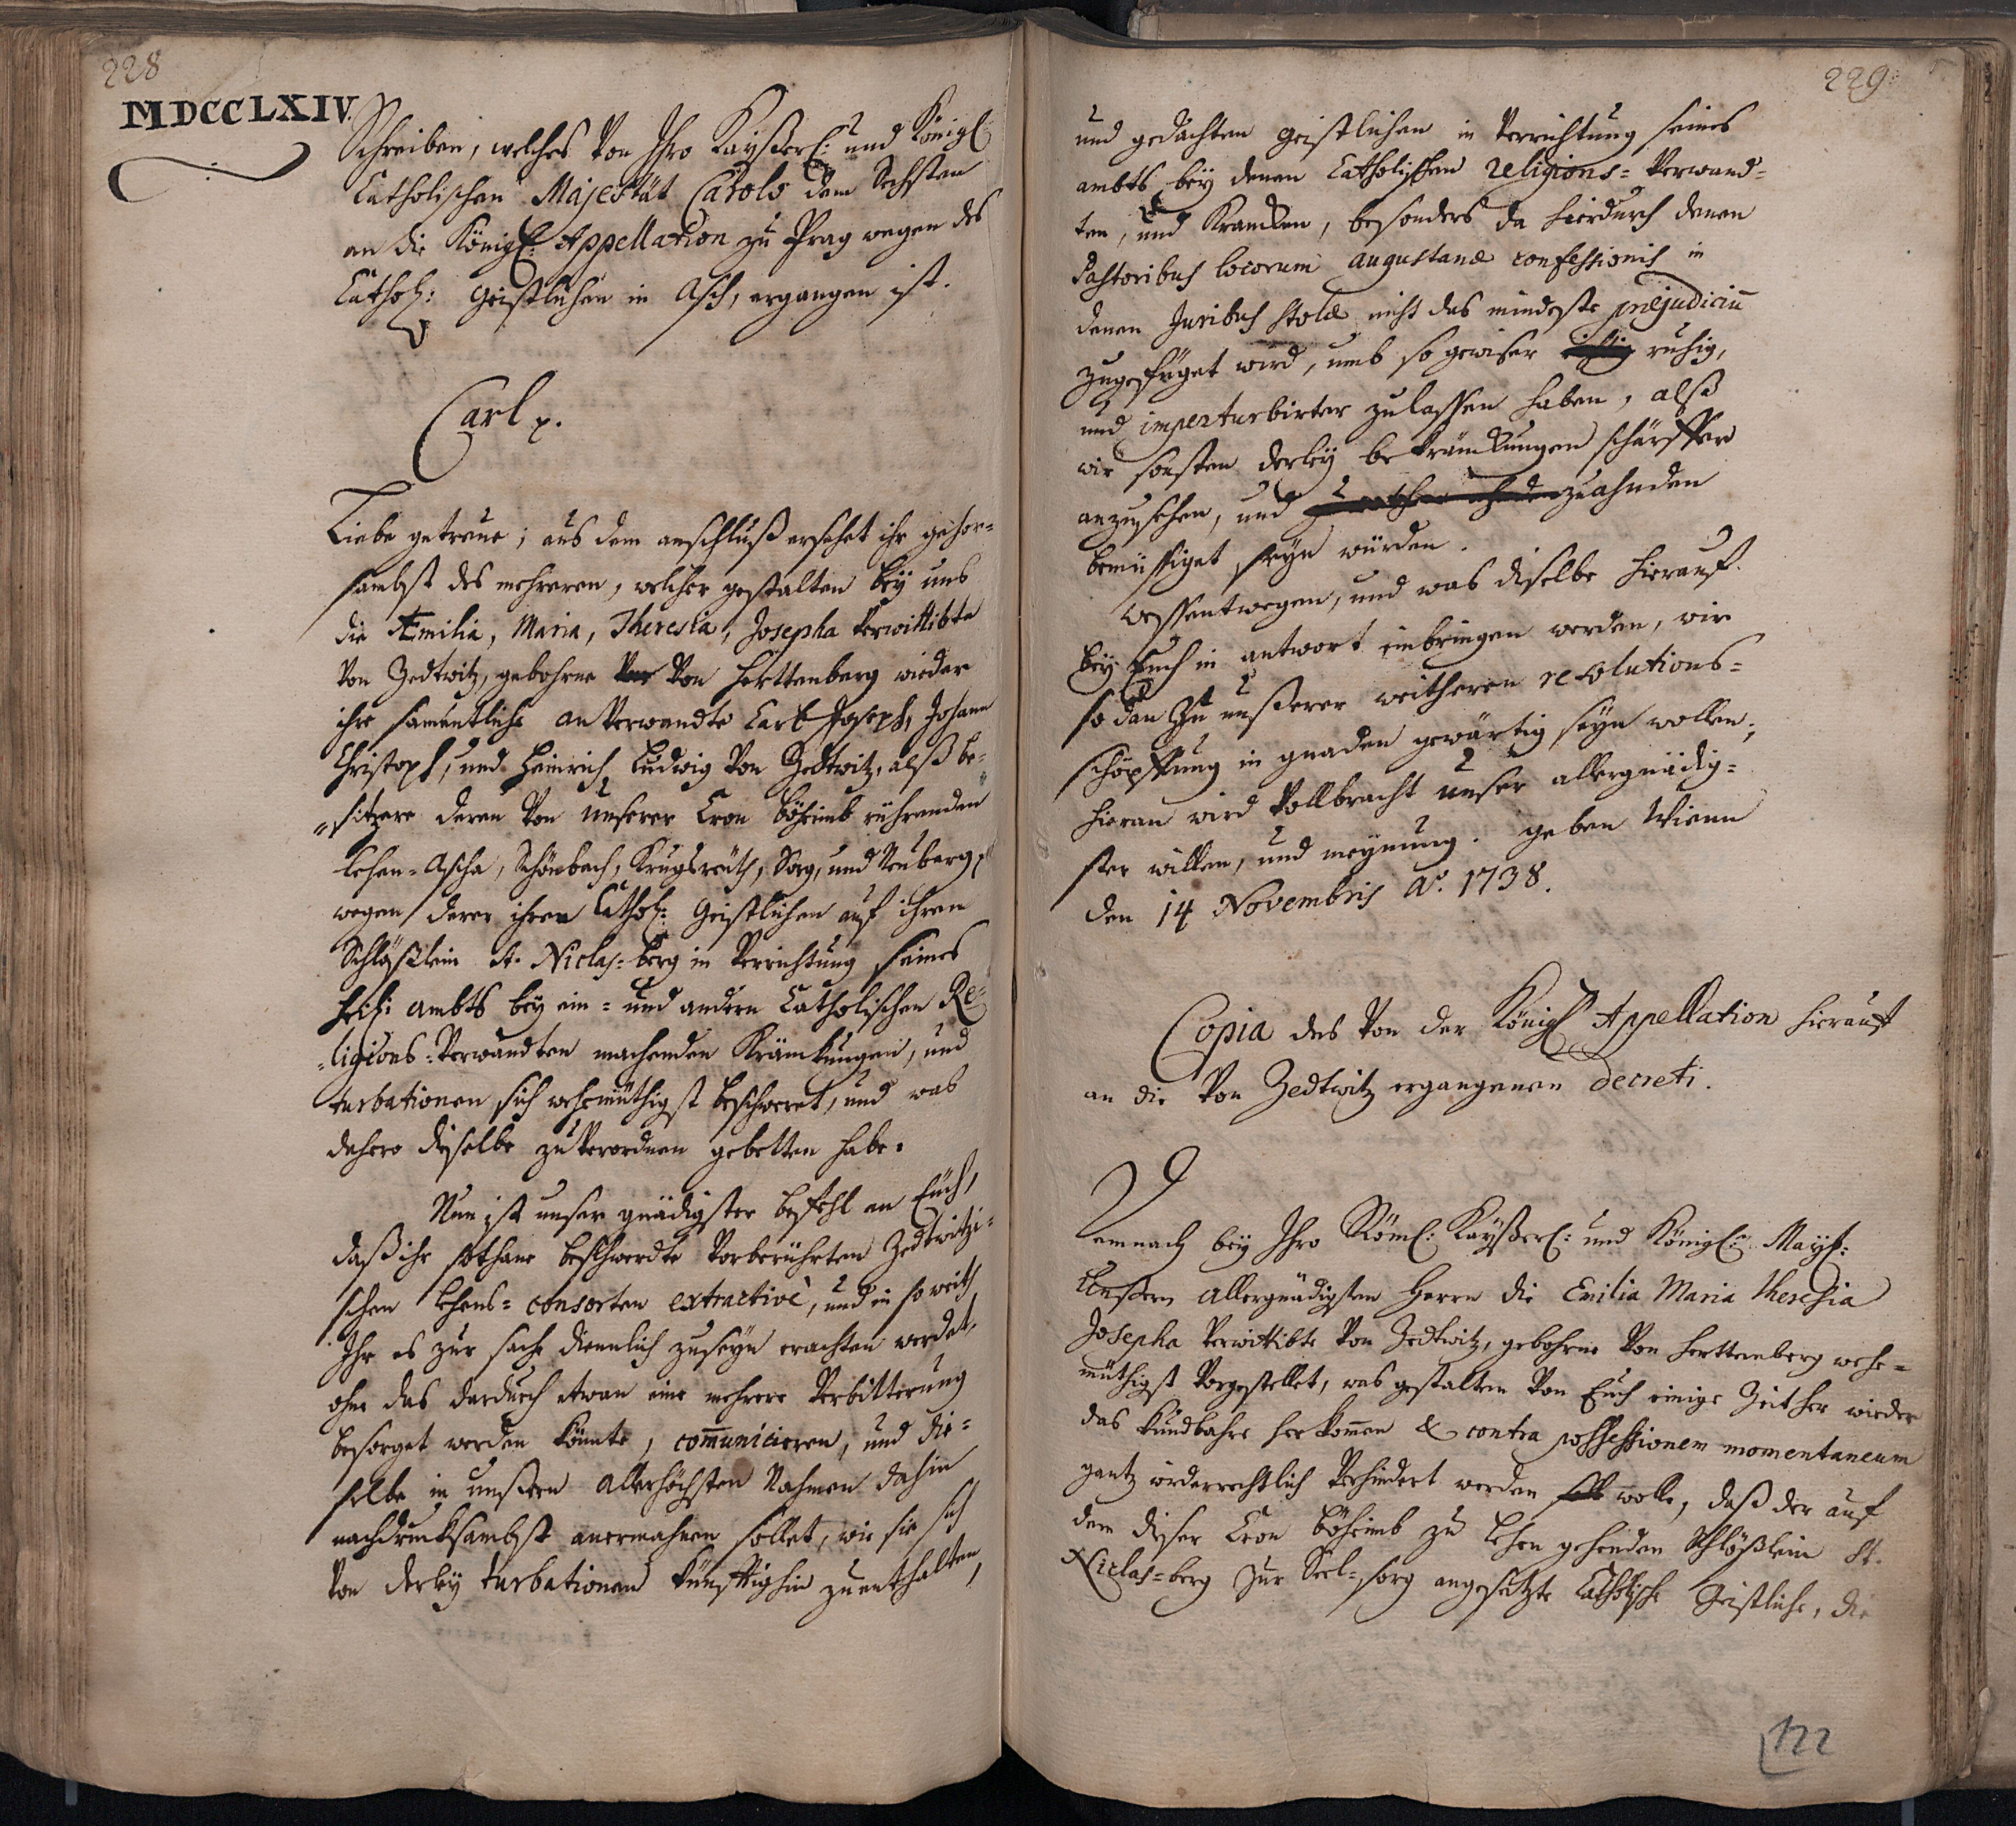 228
MDCCLXIV.
Schreiben, welches von Ihro Kayßerl: und Königl:
Catholischen Majestät Carolo dem Sechsten
an die Königl: Appellation zu Prag wegen des
Cathol: Geistlichen in Asch, ergangen ist.
Carl p.
Liebe getreue; aus dem anschluß ersehet ihr gehor=
sambst des mehreren, welcher gestalten bey uns
die Æmilia, Maria, Theresia, Josepha verwittibte
von Zedtwitz, gebohrne von von Herttenberg wieder
ihre samentliche anverwandte Carl Joseph, Johann
Christoph, und Heinrich Ludwig von Zedtwitz, alß be=
=sitzere deren von unserer Cron Böheimb rührenden
lehen=Ascha, Schönbach, Krugsreüth, Sorg, und Neuberg,
wegen derer ihren Cathol: Geistlichen auf ihren
Schlößlein St. Niclas=berg in verrichtung seines
heil: ambts bey ein= und andern Catholischen Re=
=ligions=verwandten machenden Kränkungen, und
turbationen sich wehemüthigst beschweret, und was
dahero dieselbe zu verordnen gebetten habe.
Nun ist unser gnädigster befehl an Euch,
daß ihr sothane beschwerdte vorberührten Zedtwitzi=
schen lehens=consorten extractivè, und in so weith
Ihr es zur sache dienlich zuseyn erachten werdet,
ohne das dardurch etwan eine mehrere verbitterung
besorget werden könnte, com̄uniciren, und die=
selbe in unßern allerhöchsten Nahmen dahin
nachdrucksambst anermahnen sollet, wie sie sich
von derley turbationen künfftighin zuenthalten,
229.
und gedachten geistlichen in verrichtung seines
ambts bey denen Catholischen religions=verwand=
ten, und Krancken, besonders da hierdurch denen
Pastoribus locorum augustanæ confessionis in
denen Juribus stolæ nicht das mindeste præjudiciū
zugefüget wird, umb so gewiser ruhig,
und imperturbirter zulassen haben, alß
wir sonsten derley bekränckungen schärffer
anzusehen, und zuahnden
bemüssiget seyn würden.
Wessentwegen, und was dieselbe hierauf
bey Euch in antwort einbringen werden, wir
so dan zu unßerer weitheren resolutions=
schöpffung in gnaden gewärtig seyn wollen;
hieran wird vollbracht unser allergnädig=
ster willen, und meynung. geben Wienn
den 14 Novembris Ao. 1738.
Copia des von der Königl Appellation hierauf
an die von Zedtwitz ergangenen Decreti.
Demnach bey Ihro Röml: Kayßerl: und Königl: Mayst:
Unsern allergnädigsten Herrn die Emilia Maria Theresia
Josepha verwittibte von Zedtwitz, gebohrne von Herttenberg wehe=
müthigst vorgestellet, was gestalten von Euch einige Zeit her wieder
das kundbahre herkom̄en & contra possessionem momentaneum
gantz wiederrechtlich verhindert werden soll wolle, daß der auf
dem dieser Cron Böheimb zu lehen gehenden Schlößlein St.
Niclas=berg zur Seel=sorg angesetzte Catholische Geistliche, die
122